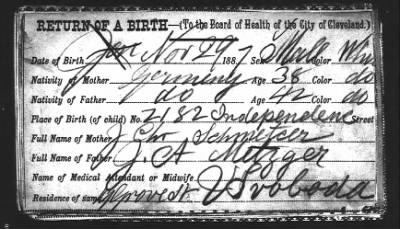 RETURN OF A BIRTH—(To the Board of Health of the City of Cleveland.)
Date of Birth Nov 29 1887 Sex Male Color Whi
Nativity of Mother Germany Age 38 Color do
Nativity of Father do Age 42 Color do
Place of Birth (of child) No. 2182 Independenc Street
Full Name of Mother Schmelzer
Full Name of Father J. A Metzger
Name of Medical Attendant or Midwife V Svoboda
Residence of same Grove st